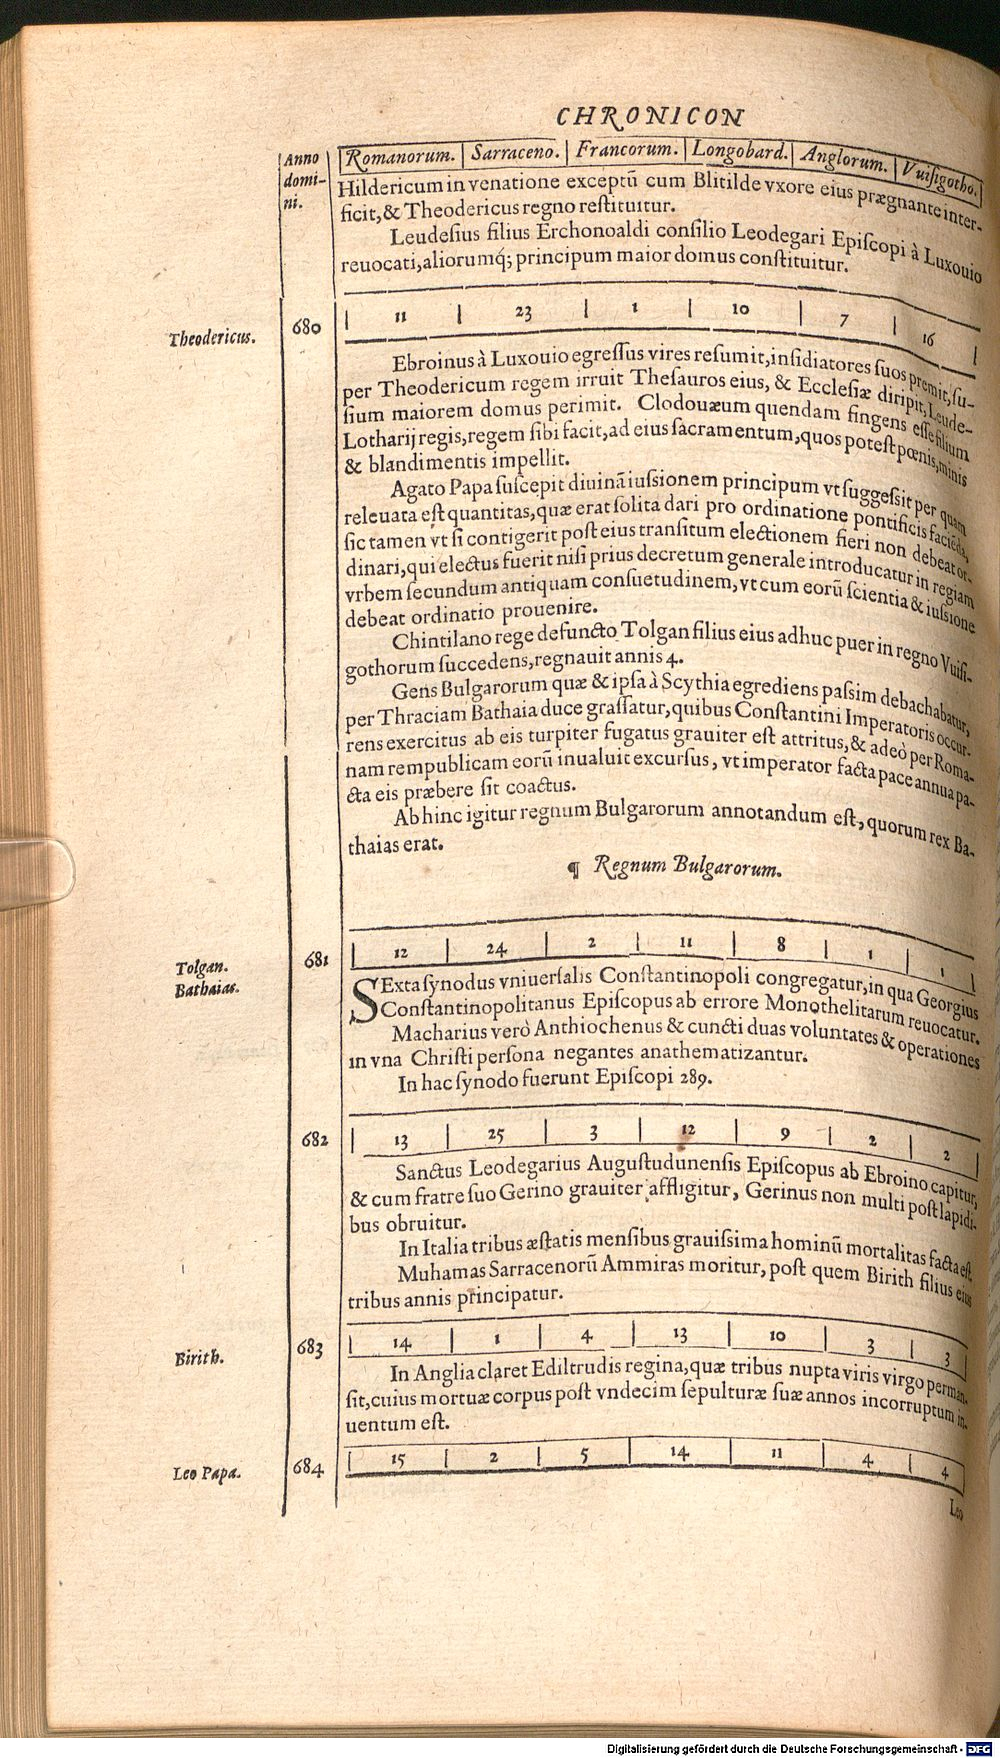 CHRONICON
Anno domi-ni. | Romanorum. | Sarraceno. | Francorum. | Longobard. | Anglorum. | Vuisigotho.
Hildericum in venatione exceptū cum Blitilde vxore eius prægnante inter-
ficit, & Theodericus regno restituitur.
Leudesius filius Erchonoaldi consilio Leodegari Episcopi à Luxouio
reuocati, aliorumq; principum maior domus constituitur.
Theodericus. 680 | 11 | 23 | 1 | 10 | 7 | 16 |
Ebroinus à Luxouio egressus vires resumit, insidiatores suos premit, su-
per Theodericum regem irruit Thesauros eius, & Ecclesiæ diripit, Leude-
sium maiorem domus perimit. Clodouæum quendam fingens esse filium
Lotharij regis, regem sibi facit, ad eius sacramentum, quos potest pœnis, minis
& blandimentis impellit.
Agato Papa suscepit diuinā iussionem principum vt suggessit per quam
releuata est quantitas, quæ erat solita dari pro ordinatione pontificis faciēda,
sic tamen vt si contigerit post eius transitum electionem fieri non debeat or-
dinari, qui electus fuerit nisi prius decretum generale introducatur in regiam
vrbem secundum antiquam consuetudinem, vt cum eorū scientia & iussione
debeat ordinatio prouenire.
Chintilano rege defuncto Tolgan filius eius adhuc puer in regno Vuisi-
gothorum succedens, regnauit annis 4.
Gens Bulgarorum quæ & ipsa à Scythia egrediens passim debachabatur,
per Thraciam Bathaia duce grassatur, quibus Constantini Imperatoris occur-
rens exercitus ab eis turpiter fugatus grauiter est attritus, & adeò per Roma-
nam rempublicam eorū inualuit excursus, vt imperator facta pace annua pa-
cta eis præbere sit coactus.
Ab hinc igitur regnum Bulgarorum annotandum est, quorum rex Ba-
thaias erat.
¶ Regnum Bulgarorum.
Tolgan. 681 | 12 | 24 | 2 | 11 | 8 | 1 | 1 |
Bathaias.
SExta synodus vniuersalis Constantinopoli congregatur, in qua Georgius
Constantinopolitanus Episcopus ab errore Monothelitarum reuocatur.
Macharius verò Anthiochenus & cuncti duas voluntates & operationes
in vna Christi persona negantes anathematizantur.
In hac synodo fuerunt Episcopi 289.
682 | 13 | 25 | 3 | 12 | 9 | 2 | 2 |
Sanctus Leodegarius Augustudunensis Episcopus ab Ebroino capitur,
& cum fratre suo Gerino grauiter affligitur, Gerinus non multi post lapidi-
bus obruitur.
In Italia tribus æstatis mensibus grauissima hominū mortalitas facta est.
Muhamas Sarracenorū Ammiras moritur, post quem Birith filius eius
tribus annis principatur.
Birith. 683 | 14 | 1 | 4 | 13 | 10 | 3 | 3 |
In Anglia claret Ediltrudis regina, quæ tribus nupta viris virgo perman-
sit, cuius mortuæ corpus post vndecim sepulturæ suæ annos incorruptum in-
uentum est.
Leo Papa. 684 | 15 | 2 | 5 | 14 | 11 | 4 | 4 |
Leo
Digitalisierung gefördert durch die Deutsche Forschungsgemeinschaft - DFG